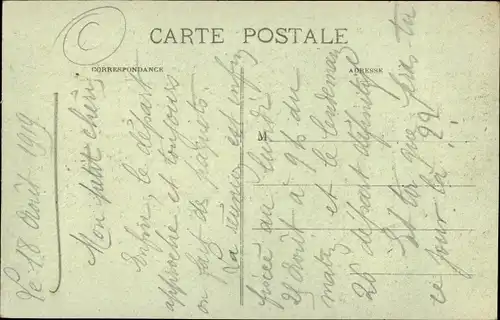 CARTE POSTALE
CORRESPONDANCE
ADRESSE
Le 18 Août 1919
Mon petit chéri
Enfin, le départ
approche et toujours
on fait des paquets.
La revue est enfin
fixée au lundi
25 Août à 9 h du
matin et le lendemain
26 départ définitif
Et toi que fais-tu
ce jour là ?